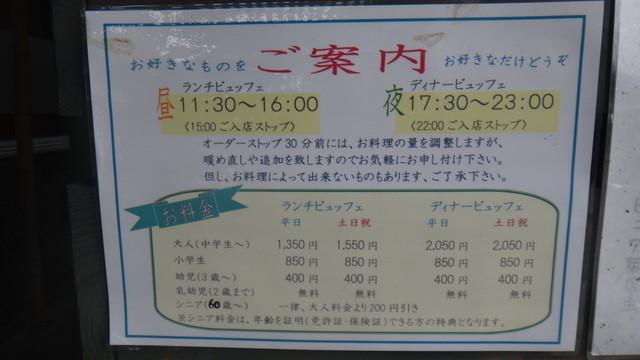 お好きなものを ご案内 お好きなだけどうぞ
昼 ランチビュッフェ
11:30～16:00
〈15:00ご入店ストップ〉
夜 ディナービュッフェ
17:30～23:00
〈22:00ご入店ストップ〉
オーダーストップ30分前には、お料理の量を調整しますが、
暖め直しや追加を致しますのでお気軽にお申し付け下さい。
但し、お料理によって出来ないものもあります、ご了承下さい。
お料金
ランチビュッフェ ディナービュッフェ
平日 土日祝 平日 土日祝
大人(中学生～) 1,350円 1,550円 2,050円 2,050円
小学生 850円 850円 850円 850円
幼児(3歳～) 400円 400円 400円 400円
乳幼児(2歳まで) 無料 無料 無料 無料
シニア(60歳～) 一律、大人料金より200円引き
※シニア料金は、年齢を証明(免許証・保険証)できる方の特典となります。